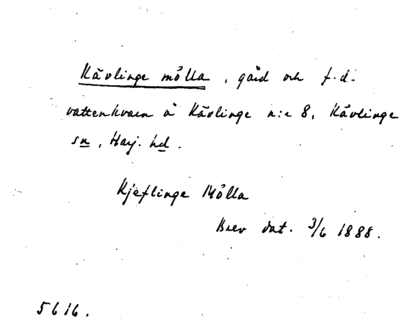 Kävlinge mölla, gård och f.d.
vattenkvarn å Kävlinge n:o 8, Kävlinge
sn, Harj. hd.
Kjeflinge Mölla
Brev dat. 3/6 1888.
5616.